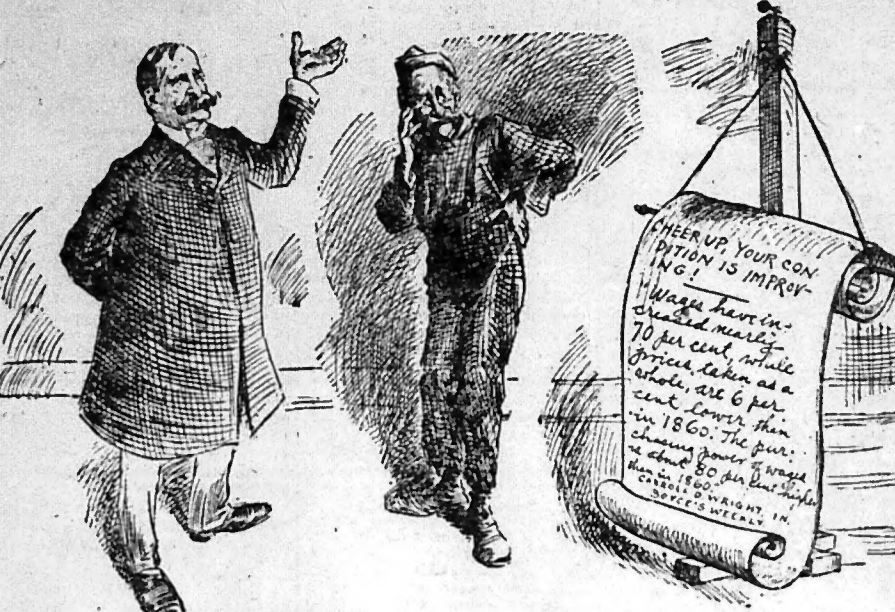 CHEER UP, YOUR CON-
DITION IS IMPROV-
ING!
"Wages have in-
creased nearly
70 per cent, while
prices, taken as a
whole, are 6 per
cent lower then
in 1860. The pur-
chasing power of wages
is about 80 per cent higher
then in 1860."
CARROLL D. WRIGHT, IN
BOYCE'S WEEKLY